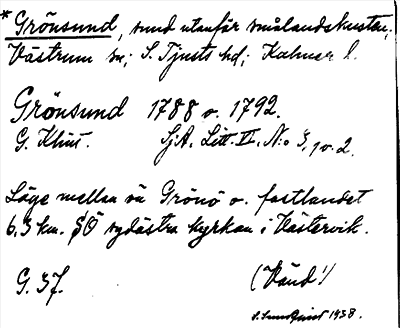 * Grönsund, sund utanför smålandskusten,
Västrum sn; S. Tjusts hd; Kalmar l.
Grönsund 1788 o. 1792.
G. Klint. SjA. Litt. VI. No 3, 1 o. 2.
Läge mellan ön Grönö o. fastlandet
6.3 km. SÖ sydöstra kyrkan i Västervik.
G. 37. (Vänd!)
S. Sundquist 1938.